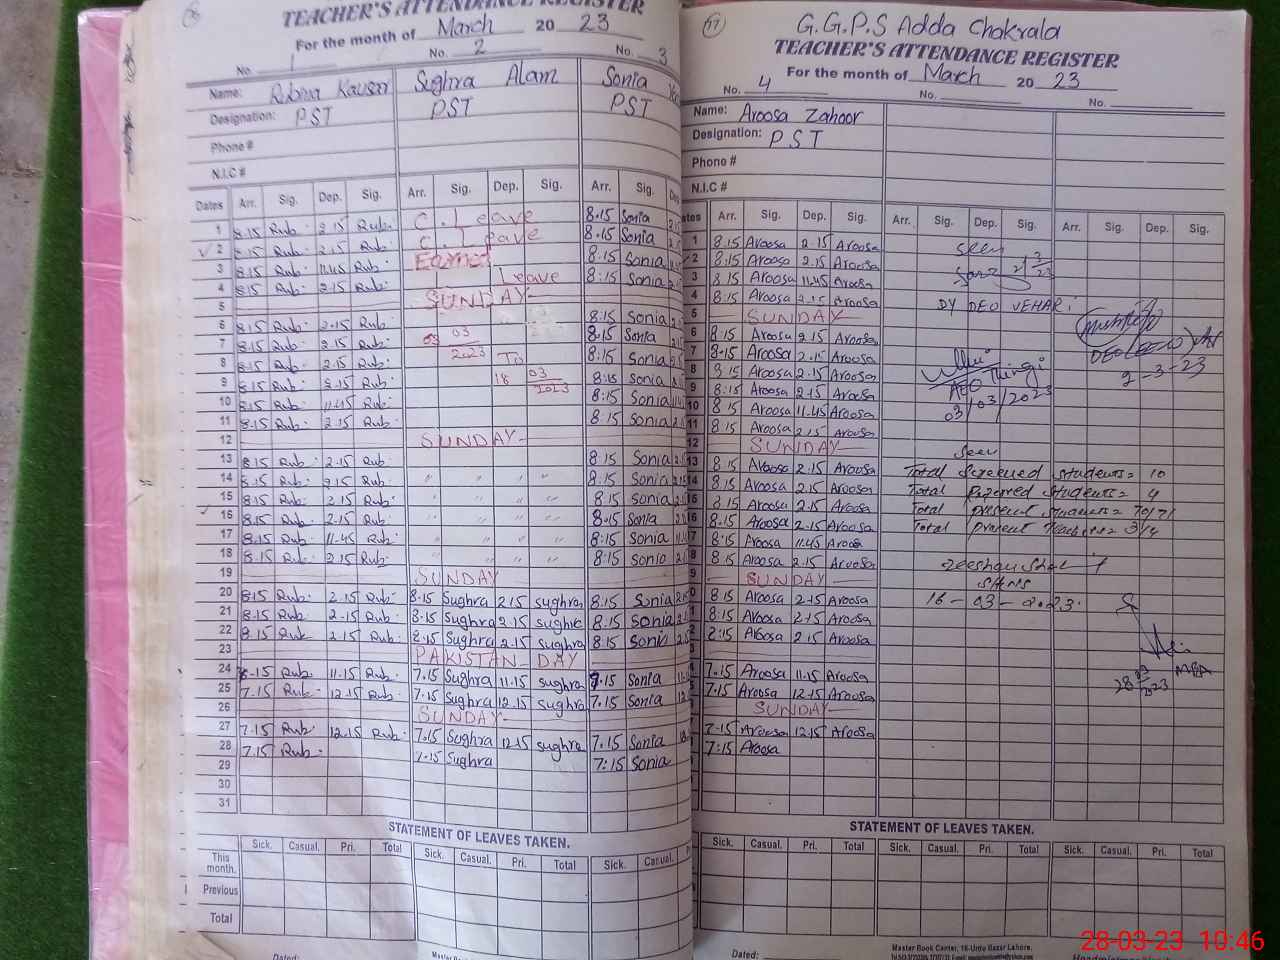 TEACHER'S ATTENDANCE REGISTER
For the month of March 20 23
No. 1 No. 2 No. 3
Name: Rubina Kausar Sughra Alam Sonia
Designation: PST PST PST
Phone #
N.I.C #
Dates Arr. Sig. Dep. Sig. Arr. Sig. Dep. Sig. Arr. Sig.
1 8.15 Rub. 2.15 Rub. C. Leave 8.15 Sonia
2 8.15 Rub. 2.15 Rub. C. Leave 8.15 Sonia
3 8.15 Rub. 11.45 Rub. Earned 8.15 Sonia
4 8.15 Rub. 2.15 Rub. Leave 8:15 Sonia
5 SUNDAY
6 8.15 Rub. 2.15 Rub. 8:15 Sonia
7 8.15 Rub. 2.15 Rub. 03 03 2023 8:15 Sonia
8 8.15 Rub. 2.15 Rub. To 8:15 Sonia
9 8.15 Rub. 2.15 Rub. 18 03 2023 8:15 Sonia
10 8.15 Rub. 11.45 Rub. 8:15 Sonia
11 8.15 Rub. 2.15 Rub. 8:15 Sonia
12 SUNDAY
13 8.15 Rub. 2.15 Rub. 8.15 Sonia
14 8.15 Rub. 2.15 Rub. 8.15 Sonia
15 8.15 Rub. 2.15 Rub. 8:15 Sonia
16 8.15 Rub. 2.15 Rub. 8.15 Sonia
17 8.15 Rub. 11.45 Rub. 8:15 Sonia
18 8.15 Rub. 2.15 Rub. 8:15 Sonia
19 SUNDAY
20 8.15 Rub. 2.15 Rub. 8.15 Sughra 2.15 sughra 8.15 Sonia
21 8.15 Rub. 2.15 Rub. 8.15 Sughra 2.15 sughra 8.15 Sonia
22 8.15 Rub. 2.15 Rub. 8.15 Sughra 2.15 sughra 8.15 Sonia
23 PAKISTAN DAY
24 Rub. 11.15 Rub. 7.15 Sughra 11.15 sughra 7.15 Sonia
25 7.15 Rub. 12.15 Rub. 7.15 Sughra 12.15 sughra 7.15 Sonia
26 SUNDAY
27 7.15 Rub. 12.15 Rub. 7.15 Sughra 12.15 sughra 7.15 Sonia
28 7.15 Rub. 7.15 Sughra 7:15 Sonia
29
30
31
STATEMENT OF LEAVES TAKEN.
Sick. Casual. Pri. Total Sick. Casual. Pri. Total Sick. Casual.
This month.
Previous
Total
Dated:
77
G.G.P.S Adda Chakrala
TEACHER'S ATTENDANCE REGISTER
For the month of March 20 23
No. 4 No. No.
Name: Aroosa Zahoor
Designation: PST
Phone #
N.I.C #
Arr. Sig. Dep. Sig. Arr. Sig. Dep. Sig. Arr. Sig. Dep. Sig.
1 8.15 Aroosa 2.15 Aroosa seen
2 8.15 Aroosa 2.15 Aroosa
3 8.15 Aroosa 11.45 Aroosa
4 8.15 Aroosa 2.15 Aroosa DY DEO VEHARI
5 SUNDAY
6 8:15 Aroosa 2.15 Aroosa
7 8.15 Aroosa 2.15 Aroosa DEO
8 8.15 Aroosa 2.15 Aroosa AEO Thingi 2-3-23
9 8:15 Aroosa 2.15 Aroosa 03/03/2023
10 8.15 Aroosa 11.45 Aroosa
11 8.15 Aroosa 2.15 Aroosa
12 SUNDAY seen
13 8.15 Aroosa 2.15 Aroosa Total Screened students = 10
14 8.15 Aroosa 2.15 Aroosa Total students = 4
15 8.15 Aroosa 2.15 Aroosa Total present students = 70/71
16 8.15 Aroosa 2.15 Aroosa Total present Teachers = 3/4
17 8:15 Aroosa 11.45 Aroosa
8 8.15 Aroosa 2.15 Aroosa
9 SUNDAY SHNS
0 8.15 Aroosa 2.15 Aroosa 16-03-2023
1 8.15 Aroosa 2.15 Aroosa
2 8:15 Aroosa 2.15 Aroosa
3
4 7.15 Aroosa 11.15 Aroosa MEA
5 7.15 Aroosa 12.15 Aroosa 28 03 2023
SUNDAY
7.15 Aroosa 12.15 Aroosa
7:15 Aroosa
STATEMENT OF LEAVES TAKEN.
Sick. Casual. Pri. Total Sick. Casual. Pri. Total Sick. Casual. Pri. Total
Dated:
Master Book Center, 16-Urdu Bazar Lahore.
28-03-23 10:46